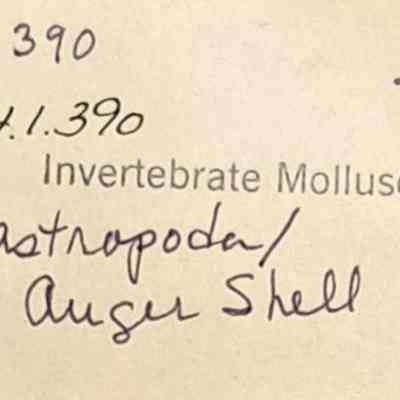 390
4.1.390
Invertebrate Mollusc
astropoda/
Auger Shell